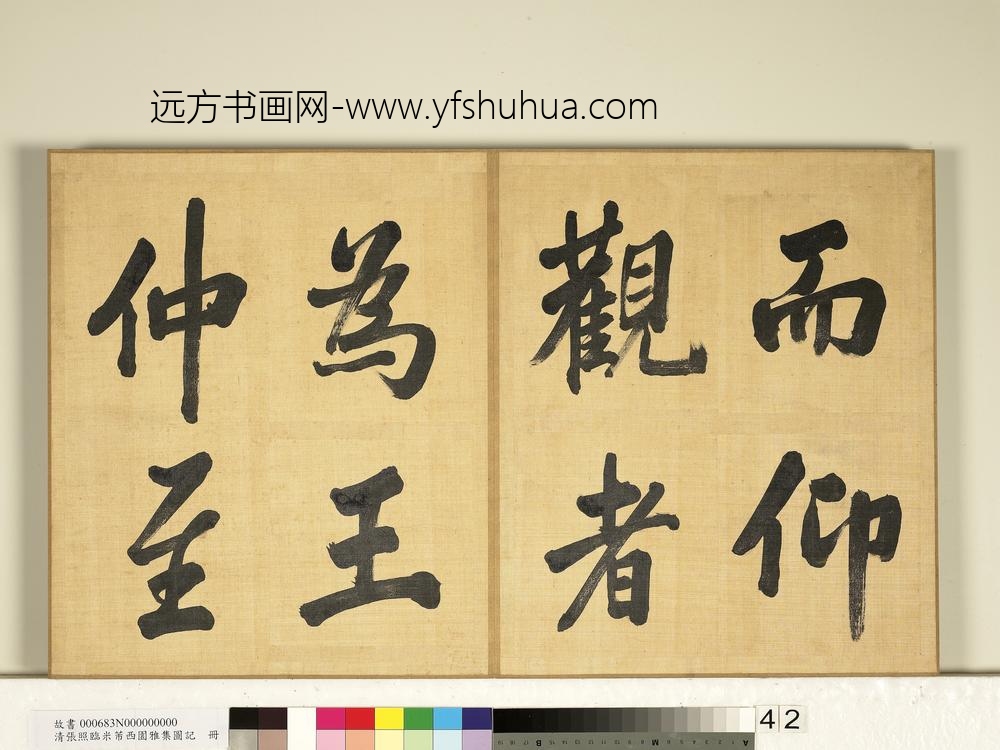 远方书画网-www.yfshuhua.com
而仰
觀者
為王
仲至
故書 000683N000000000
清張照臨米芾西園雅集圖記 冊
42